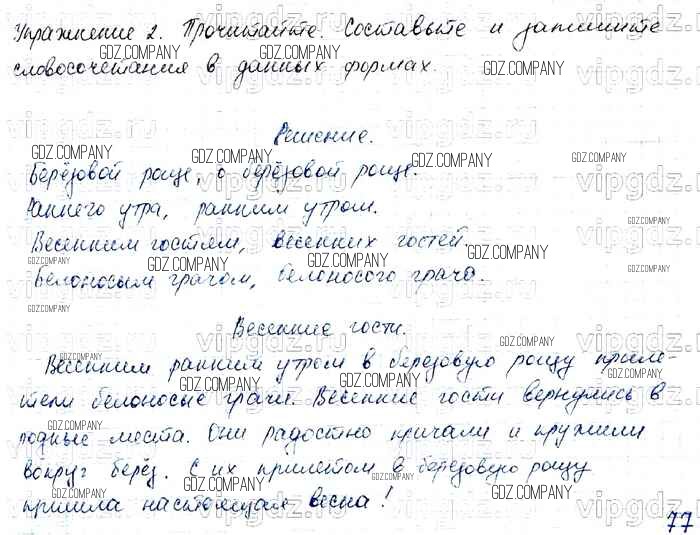 Упражнение 2. Прочитайте. Составьте и запишите
словосочетания в данных формах.
Решение.
Берёзовой роще, о берёзовой роще.
Раннего утра, ранним утром.
Весенним гостям, весенних гостей.
Белоносым грачом, белоносого грача.
Весенние гости.
Весенним ранним утром в березовую рощу приле-
тели белоносые грачи. Весенние гости вернулись в
родные места. Они радостно кричали и кружили
вокруг берёз. С их прилетом в березовую рощу
пришла настоящая весна!
77